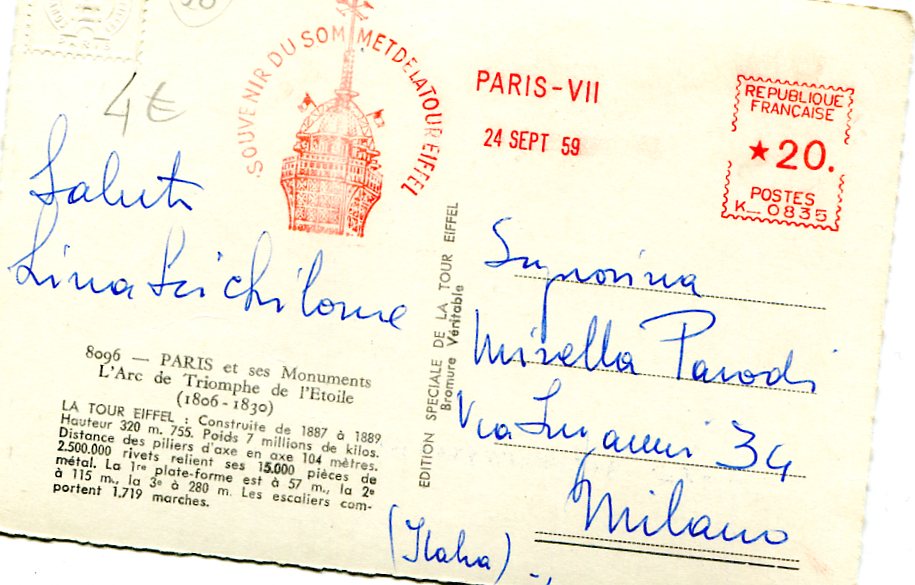 4€
SOUVENIR DU SOMMET DE LA TOUR EIFFEL
PARIS-VII
24 SEPT 59
REPUBLIQUE
FRANÇAISE
★20.
POSTES
K_0835
Saluti
Lina
8096 — PARIS et ses Monuments
L'Arc de Triomphe de l'Etoile
(1806-1830)
LA TOUR EIFFEL : Construite de 1887 à 1889
Hauteur 320 m. 755. Poids 7 millions de kilos.
Distance des piliers d'axe en axe 104 mètres.
2.500.000 rivets relient ses 15.000 pièces de
métal. La 1re plate-forme est à 57 m., la 2e
à 115 m., la 3e à 280 m. Les escaliers com-
portent 1.719 marches.
EDITION SPECIALE DE LA TOUR EIFFEL
Bromure Véritable
Signorina
Mirella Parodi
Via 34
Milano
(Italia)